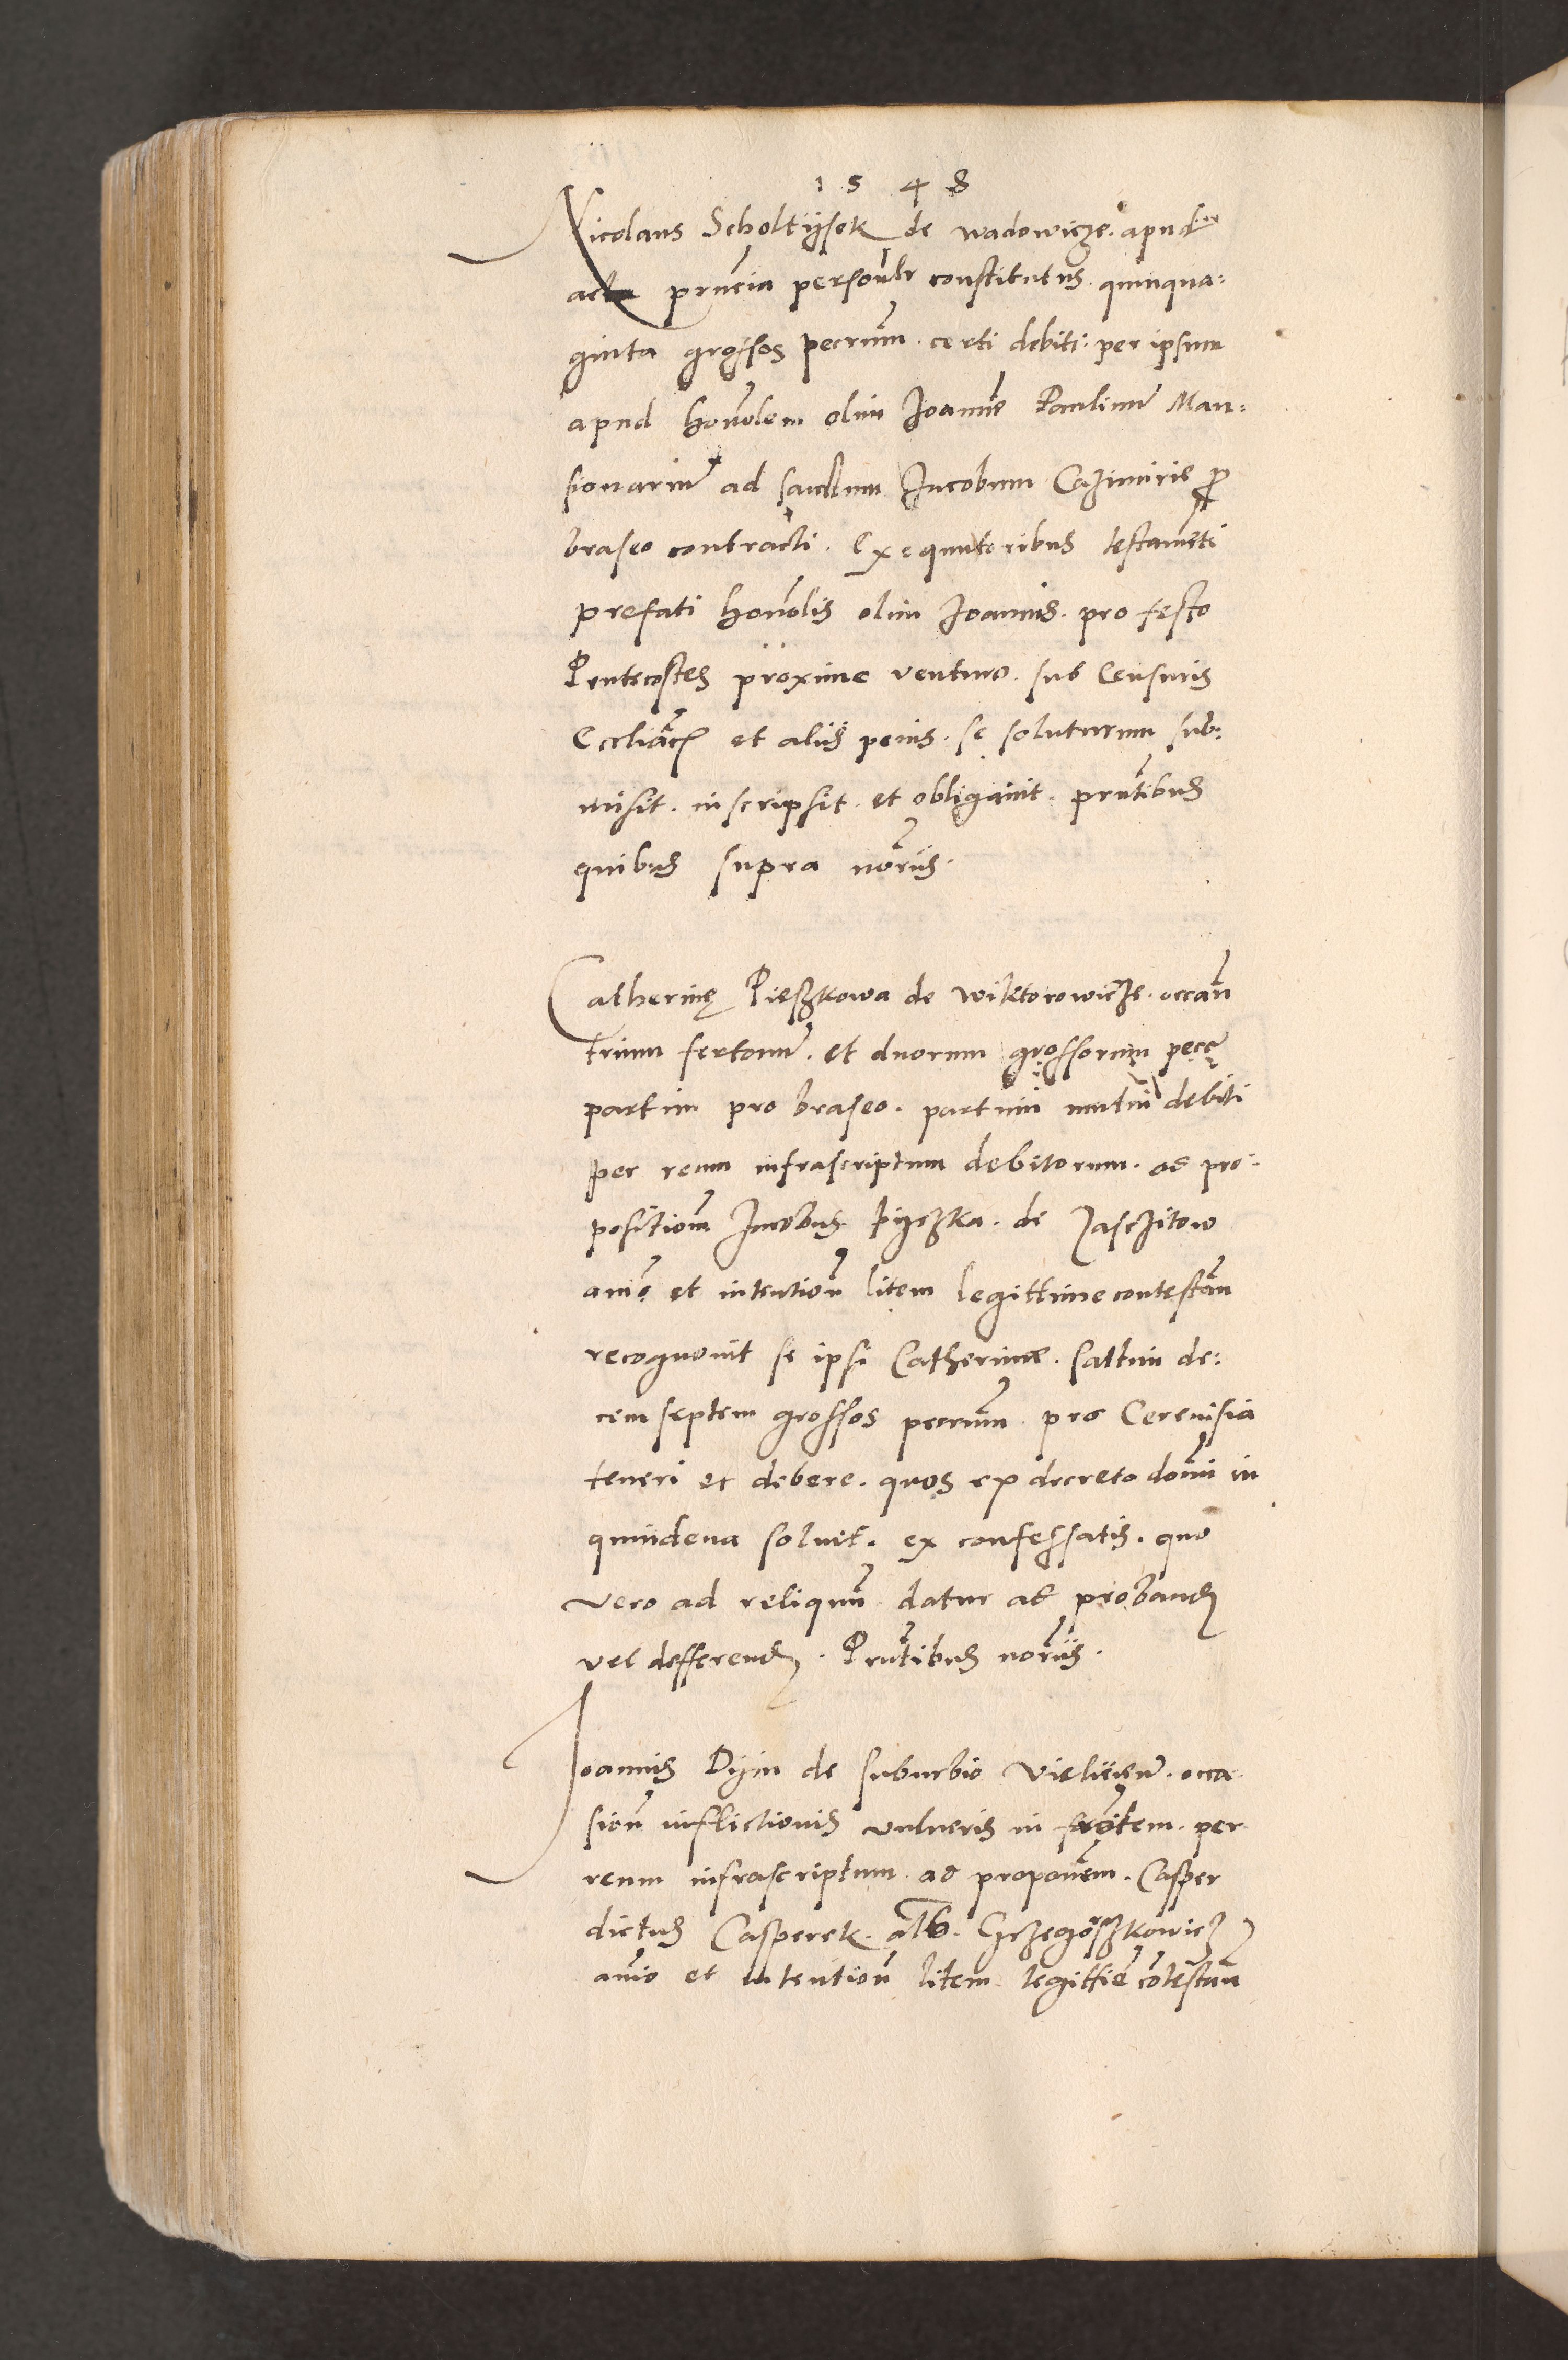 1548
Nicolaus Scholtijsek de wadowicze. apud
acta prñcia personlr constitutus. quinqua:
ginta grossos pecrum. certi debiti. per ipsum
apud honolem olim Joanne Paulinu Man:
sionariu ad sanctum Jacobum Cazimirie pro
braseo contracti. Exequutoribus testameti
prefati honolis olim Joannis. pro festo
Pentecostes proxime venturo. sub Censuris
Ecclīacz et aliis penis. se soluturum sub:
misit. inscripsit. et obligauit. prntibus
quibus supra noriis.
Catherinę Pieszkowa de wiktorowicze. occan
trium fertonu. et duorum grossorum pece
partim pro braseo. partim mutui debiti
per reum infrascriptum debitorum. ad pro:
positiom Jacobus Pijczka. de Jaschitow
anio et intention litem legittime contestan
recognouit se ipsi Catherinæ. saltim de:
cem septem grossos pecrum pro Cereuisia
teneri et debere. quos ex decreto domni in
quindena soluet. ex confessatis. quo
vero ad reliquu datur ad proband
vel defferend. Prntibus noriis.
Joannis Dijm de suburbio vieliciem. occa
sion inflictionis vulneris in frotem. per
reum infrascriptum ad proponem. Casper
dictus Casperek. als. Grzegoszkowicz
anio et intention litem. legittie cotestan